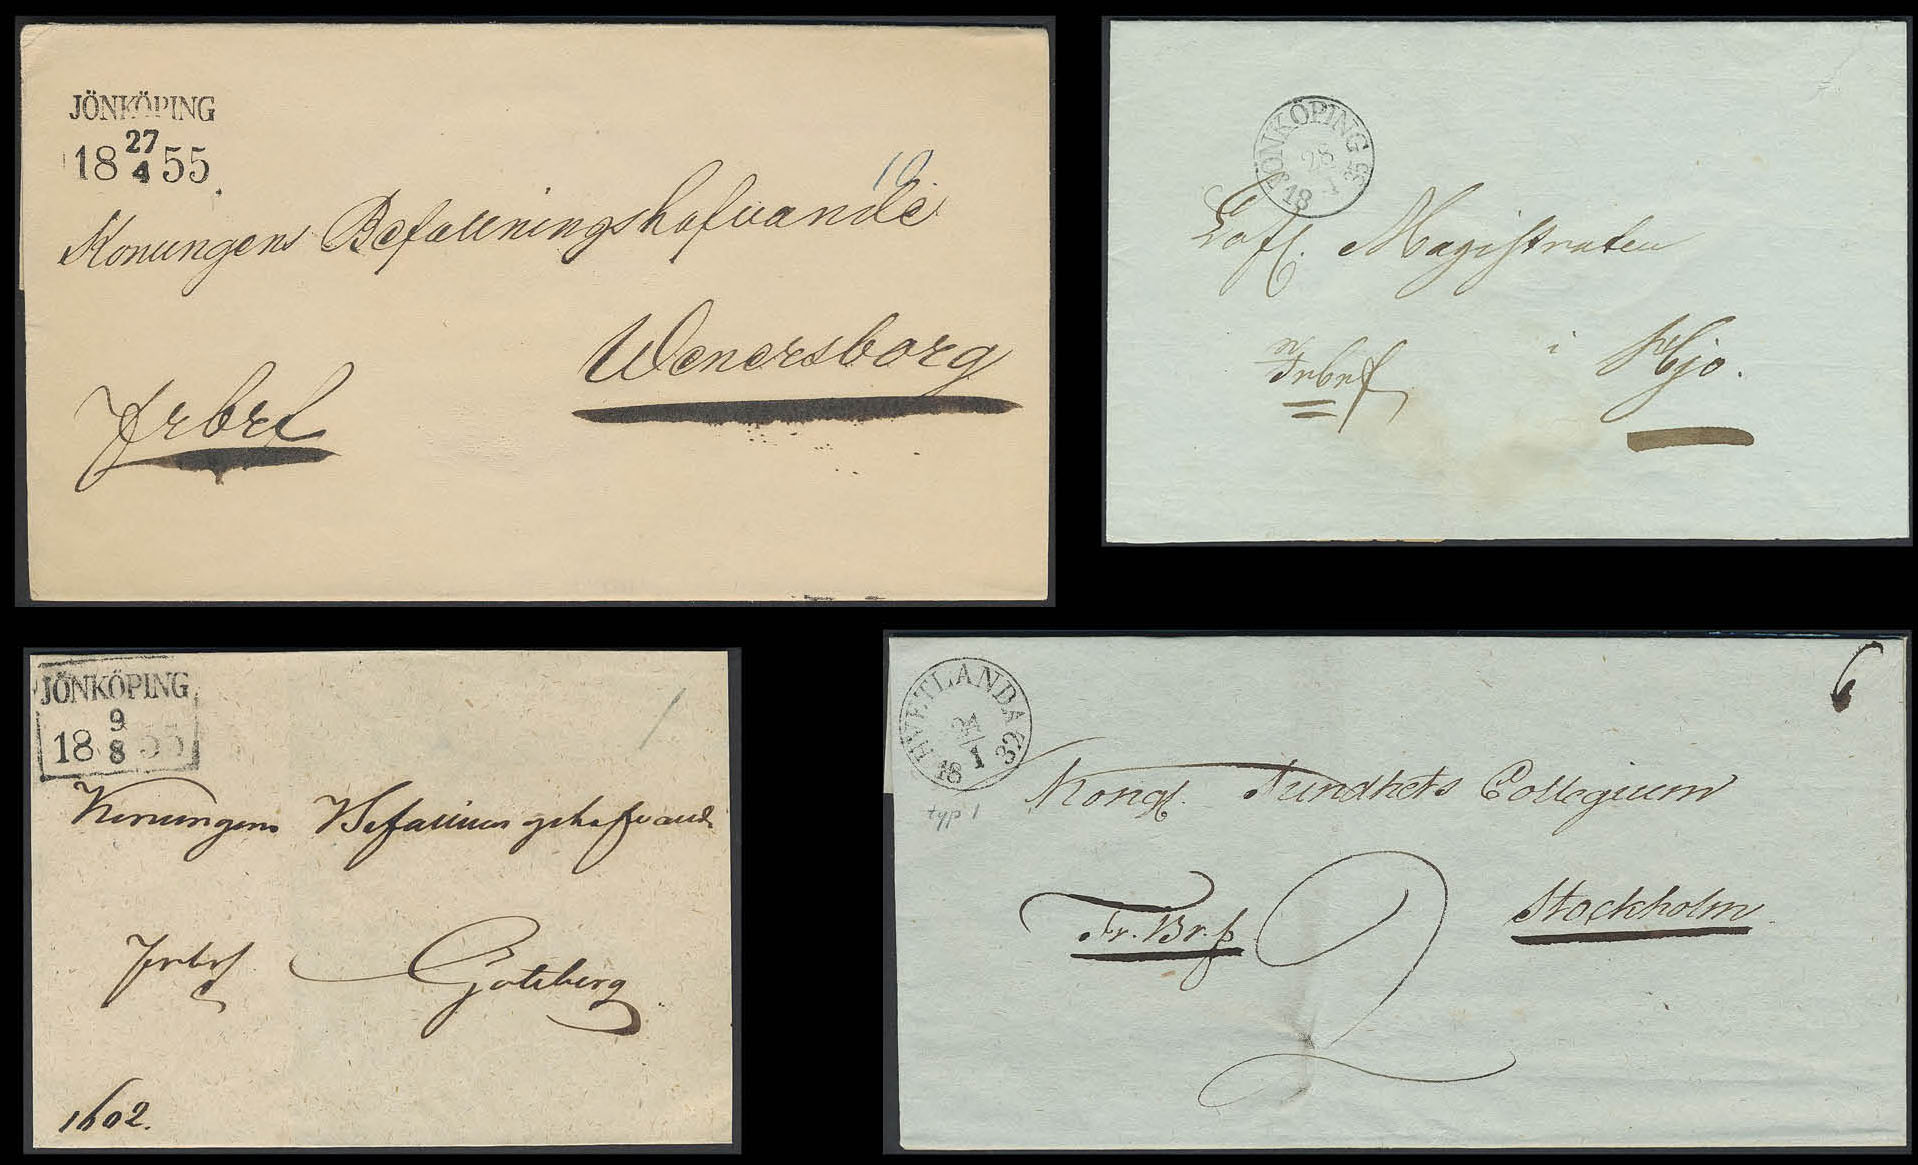 JÖNKÖPING
27
18 4 55
10.
Konungens Befallningshafvande
Wenersborg
frbrf
JÖNKÖPING
28
18 1 35
Lofl. Magistraten
i Hjo.
frbrf
JÖNKÖPING
9
18 8 55
Konungens Befallningshafvande
frbrf Göteborg
1602.
HVETLANDA
24
18 1 32
typ 1
6
Kongl. Sundhets Collegium
Fr. Br. 2 Stockholm